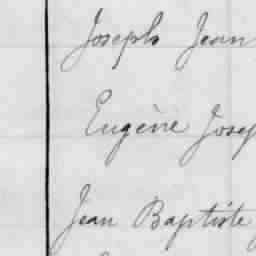 Joseph Jean
Eugène Josep
Jean Baptiste